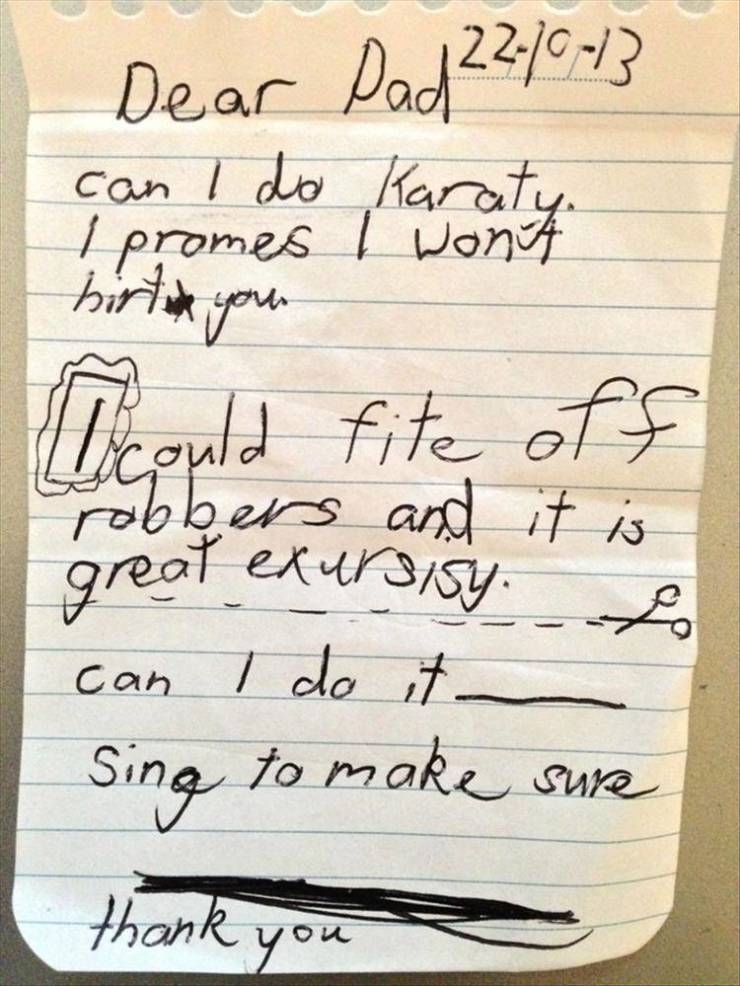 Dear Dad 22-10-13
can I do Karaty.
I promes I won't
hirt you.
I could fite off
robbers and it is
great exursisy.
can I do it
Sing to make sure
thank you